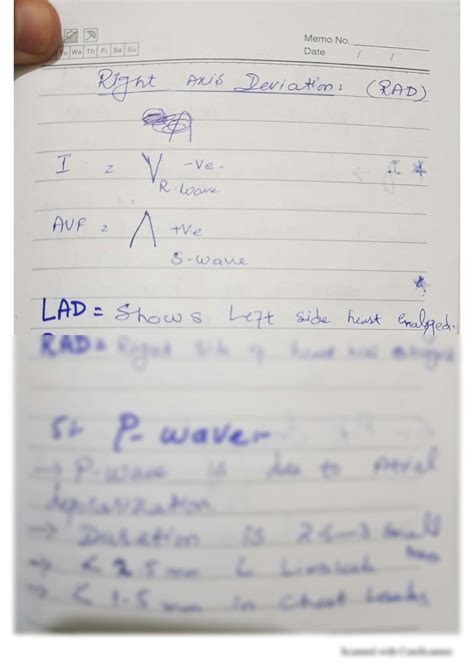 Memo No.
Tu We Th Fr Sa Su
Date / /
Right Axis Deviation: (RAD)
I = -ve.
R-wave
AVF = +ve
S-wave
LAD = Shows Left side heart enalrged.
RAD = Right side of heart
5: P-wave:-
→ P-wave is due to Atrial
depolarization
→ Duration is
→ < 2.5 mm
→ < 1.5 mm in Chest Leads
Scanned with CamScanner